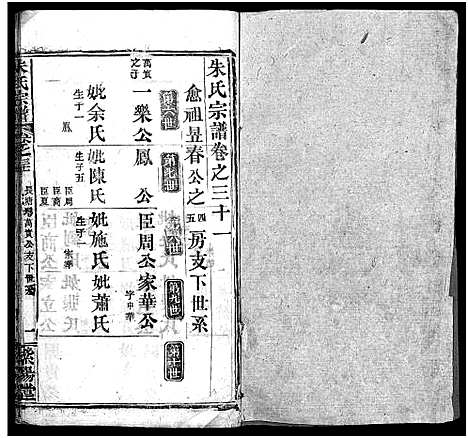 朱氏宗譜卷之三十一
愈祖昱春公之四五房支下世系
第六世
第七世
第八世
第九世
第十世
萬貴之子
一樂公
鳳公
臣周公
家華公
字中華
妣余氏
生子一
鳳
妣陳氏
生子五
臣周
臣夏
妣施氏
生子一
家華
妣蕭氏
朱氏宗譜
萬貴公支下世系
一
紫陽堂